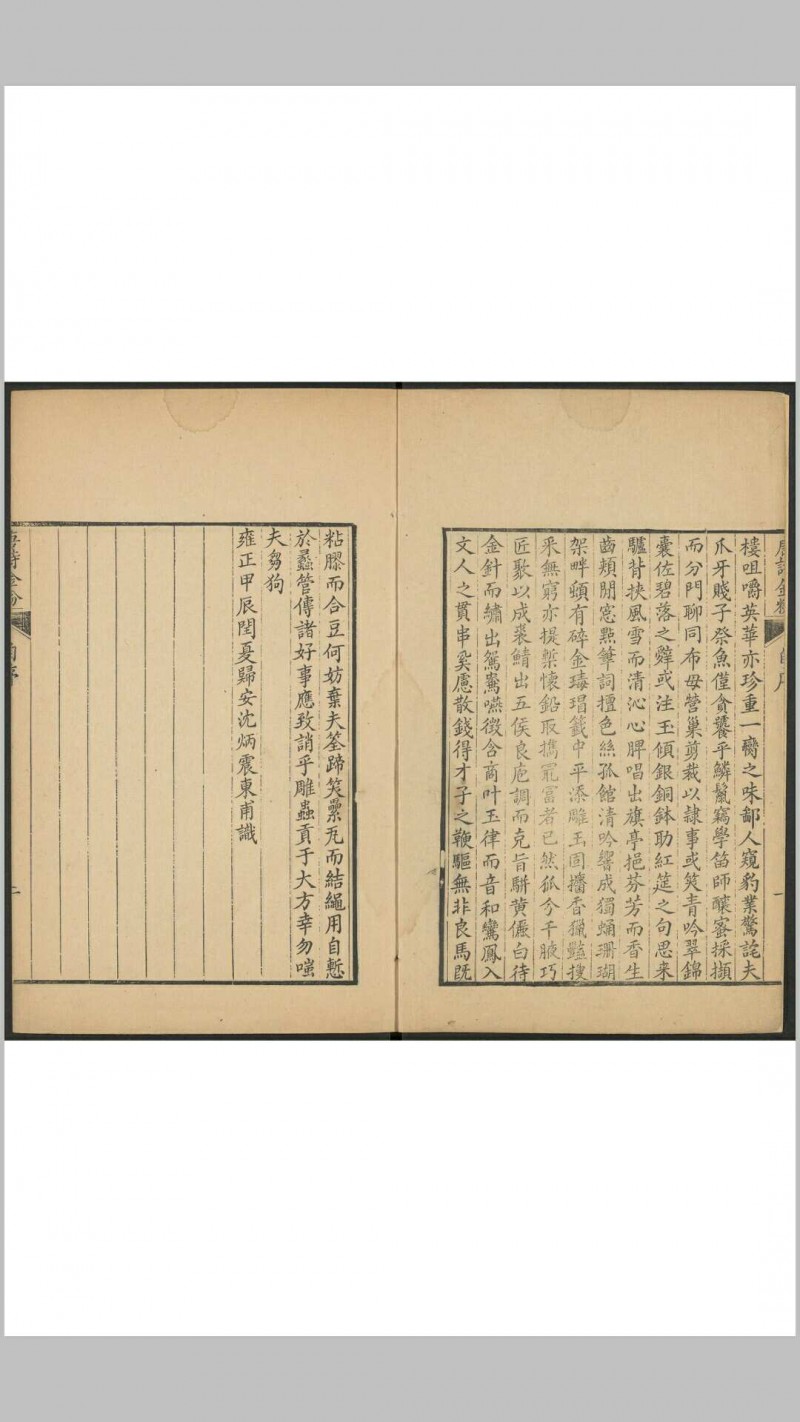 棲咀嚼英華亦珍重一臠之味鄙人窺豹業驚詫夫
爪牙賤子祭魚僅貪饕乎鱗鬣竊學笛師釀蜜採擷
而分門聊同布母營巢剪裁以隷事或笑青吟翠錦
囊佐碧落之辭或注玉傾銀銅鉢助紅筵之句思来
驢背挾風雪而清沁心脾唱出旗亭挹芬芳而香生
齒頰閒窓點筆詞擅色絲孤館清吟響成獨蛹珊瑚
架畔頓有碎金瑇瑁籤中平添雕玉固擷香獵豔搜
采無窮亦提槧懷鉛取攜罷富者已然狐兮千腋巧
匠聚以成裘鯖出五侯良庖調而克旨駢黄儷白待
金針而繡出鴛鴦嚥徴含商叶玉律而音和鸞鳳入
文人之貫串奚慮散錢得才子之鞭驅無非良馬既
粘膠而合豆何妨棄夫筌蹄笑纍瓦而結繩用自慙
於蠡管傳諸好事應致誚乎雕蟲貢于大方幸勿嗤
夫芻狗
雍正甲辰閏夏歸安沈炳震東甫識